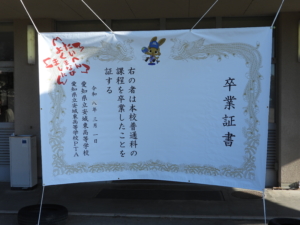 卒業証書
右の者は本校普通科の
課程を卒業したことを
証する
令和八年三月一日
愛知県立安城東高等学校
愛知県立安城東高等学校PTA